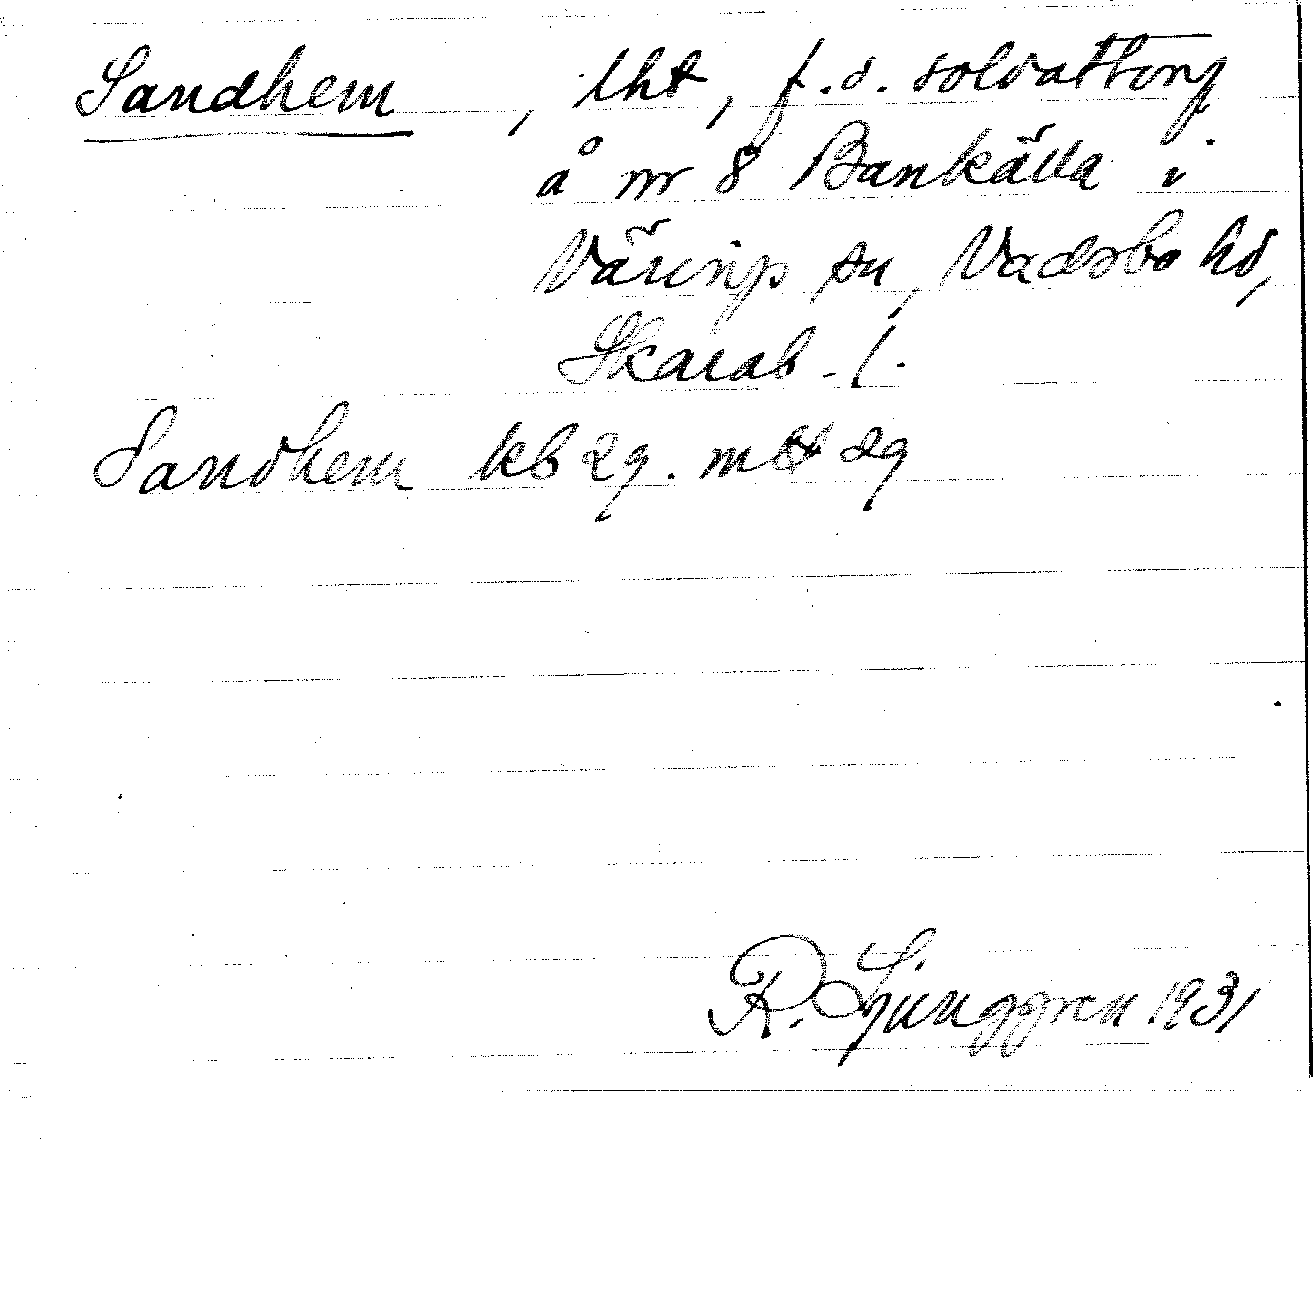 Sandhem, lht, f.d. soldattorp
å nr 8 Bankälla i
Värings sn, Vadsbo hd,
Skarab. l.
Sandhem kb 29. mtl dg
R. Ljunggren 1931